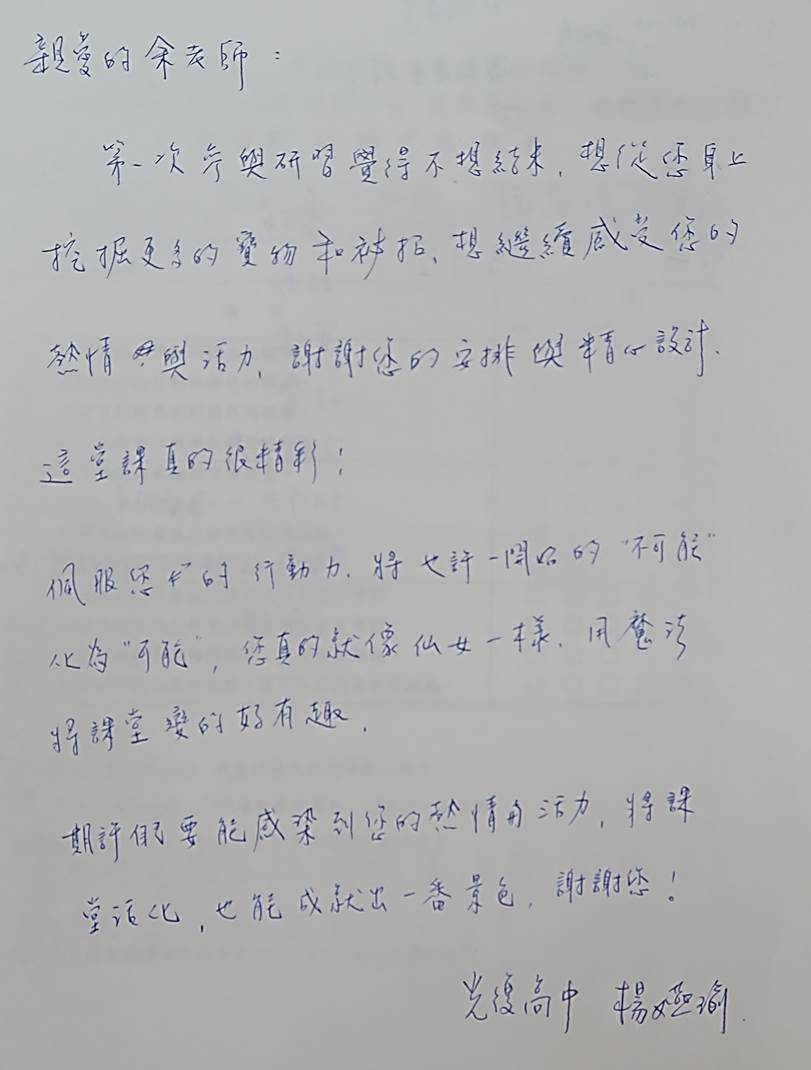 親愛的余老師：
第一次參與研習覺得不想結束，想從您身上
挖掘更多的寶物和祕招、想繼續感受您的
熱情與活力，謝謝您的安排與精心設計，
這堂課真的很精彩！
佩服您的行動力，將也許一開始的"不可能"
化為"可能"，您真的就像仙女一樣、用魔法
將課堂變的好有趣，
期許 要能感染到您的熱情與活力，將課
堂活化，也能成就出一番景色，謝謝您！
光復高中 楊婭瑜